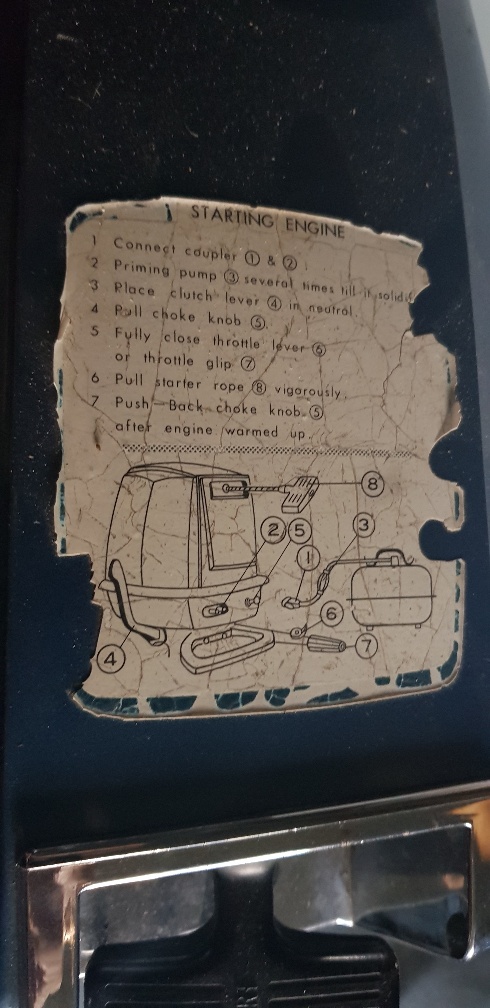 STARTING ENGINE
1 Connect coupler ① & ②.
2 Priming pump ③ several times till it solidif
3 Place clutch lever ④ in neutral.
4 Pull choke knob ⑤.
5 Fully close throttle lever ⑥
or throttle glip ⑦
6 Pull starter rope ⑧ vigorously.
7 Push-Back choke knob ⑤
after engine warmed up.
⑧
② ⑤ ③
①
⑥
④ ⑦